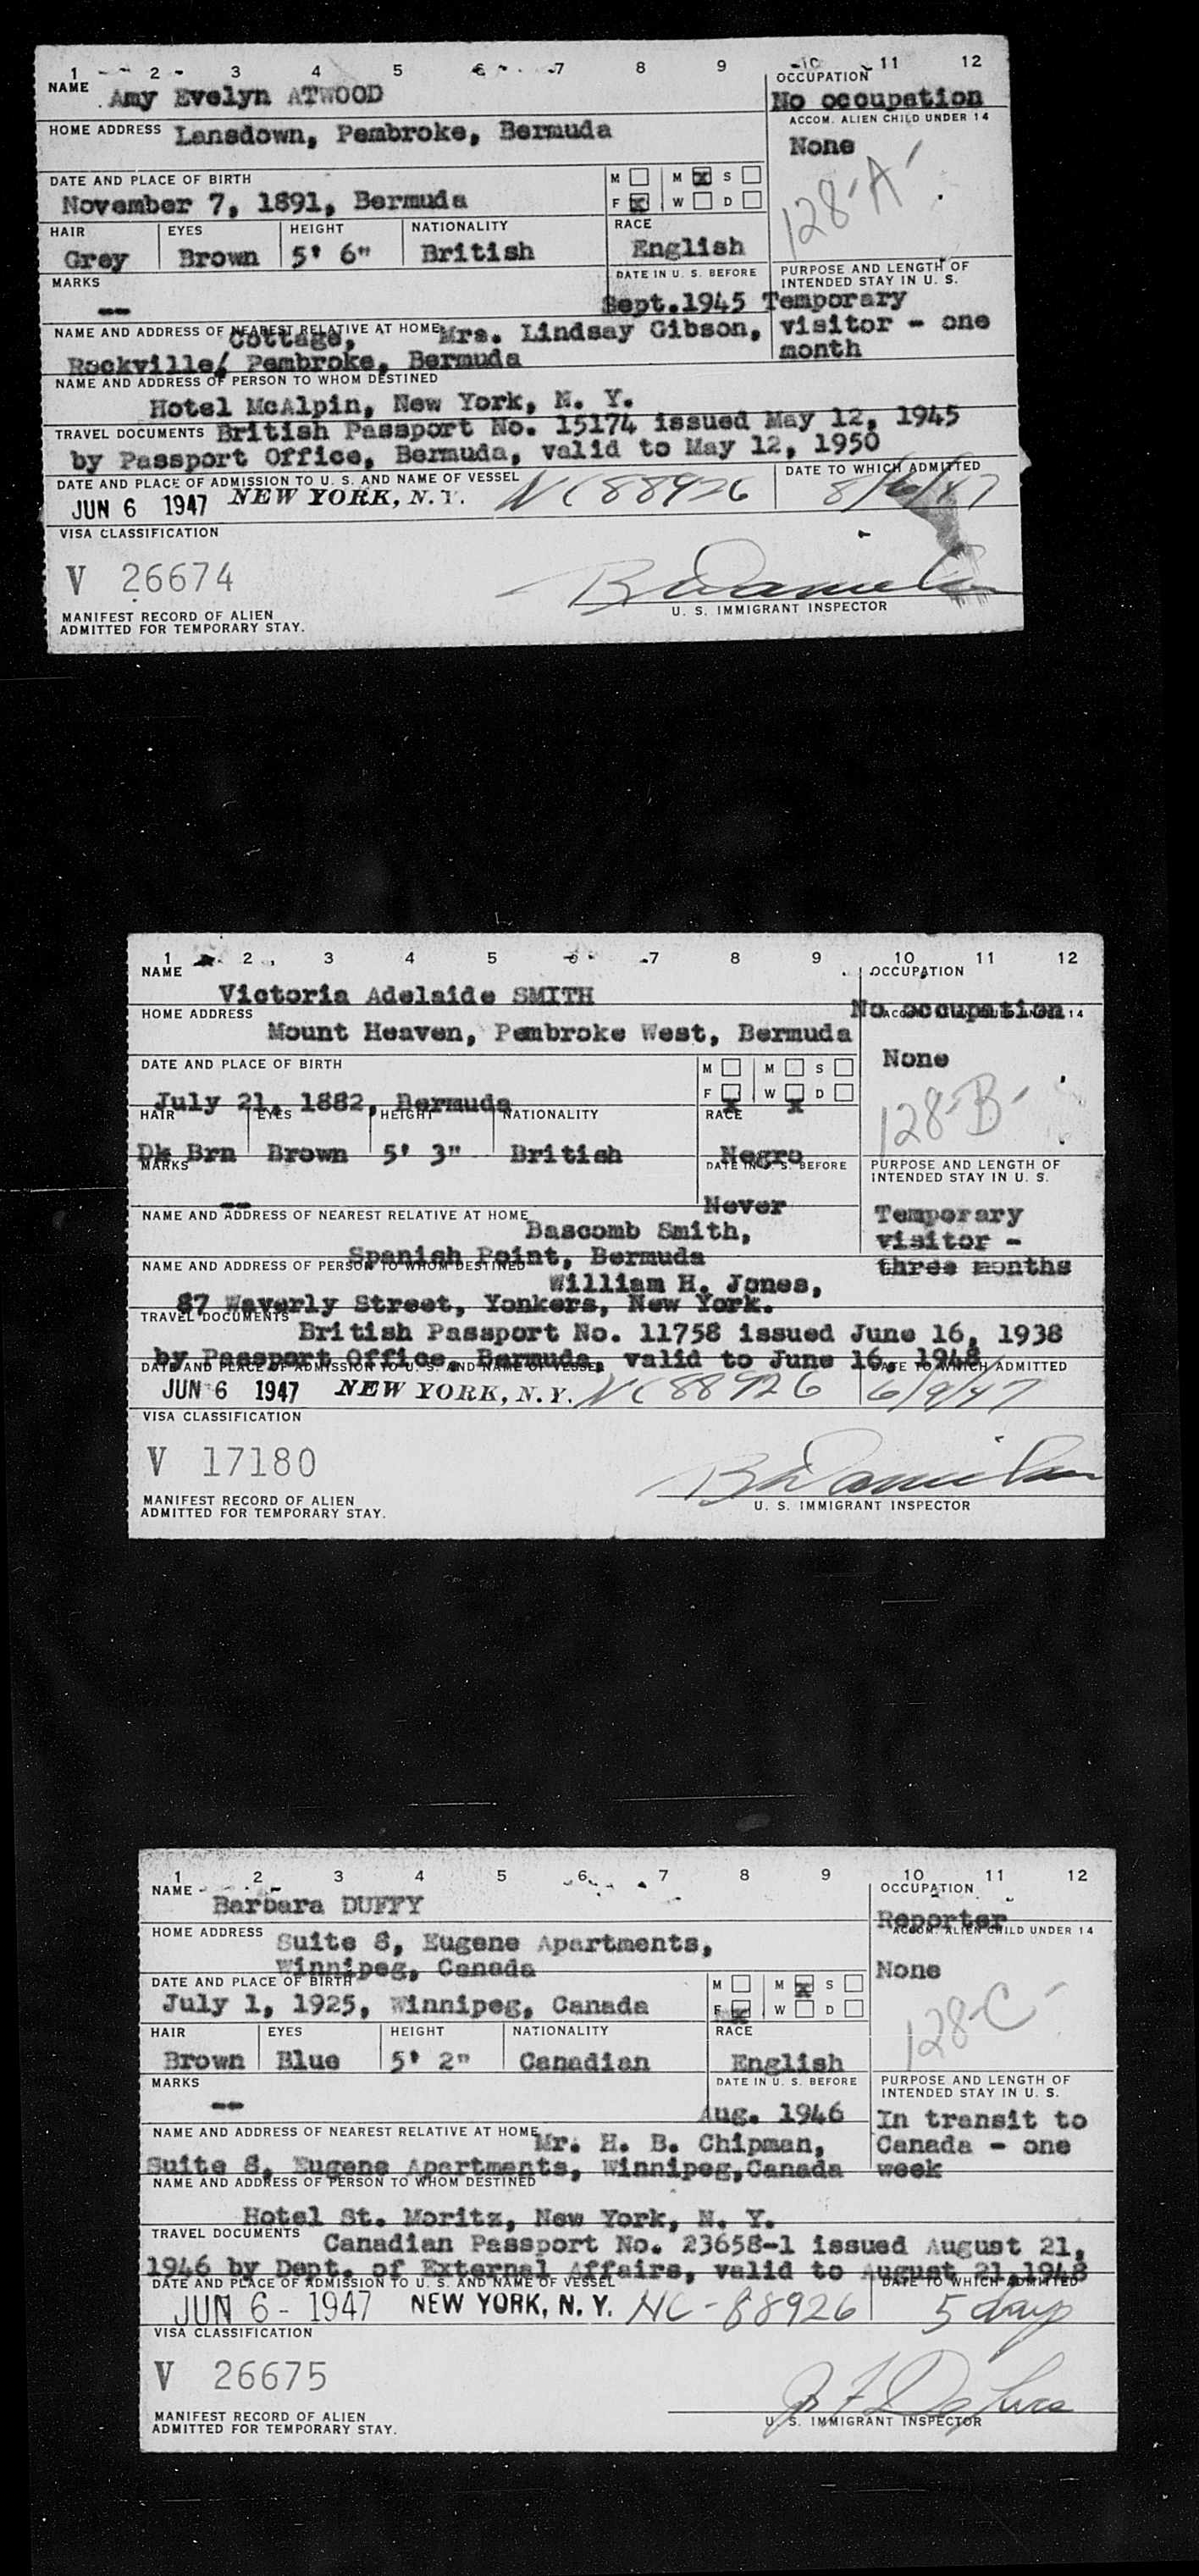 1 2 3 4 5 6 7 8 9 10 11 12
NAME Amy Evelyn ATWOOD
OCCUPATION
No occupation
HOME ADDRESS Lansdown, Pembroke, Bermuda
ACCOM. ALIEN CHILD UNDER 14
None
128-A-
DATE AND PLACE OF BIRTH
November 7, 1891, Bermuda
M M X S
F X W D
HAIR EYES HEIGHT NATIONALITY RACE
Grey Brown 5' 6" British English
MARKS
--
DATE IN U. S. BEFORE
Sept.1945
PURPOSE AND LENGTH OF
INTENDED STAY IN U. S.
Temporary
visitor - one
month
NAME AND ADDRESS OF NEAREST RELATIVE AT HOME Mrs. Lindsay Gibson,
Cottage,
Rockville/ Pembroke, Bermuda
NAME AND ADDRESS OF PERSON TO WHOM DESTINED
Hotel McAlpin, New York, N. Y.
TRAVEL DOCUMENTS British Passport No. 15174 issued May 12, 1945
by Passport Office, Bermuda, valid to May 12, 1950
DATE AND PLACE OF ADMISSION TO U. S. AND NAME OF VESSEL
DATE TO WHICH ADMITTED
JUN 6 1947 NEW YORK, N.Y. NC 88926 8/6/47
VISA CLASSIFICATION
V 26674
U. S. IMMIGRANT INSPECTOR
MANIFEST RECORD OF ALIEN
ADMITTED FOR TEMPORARY STAY.
1 2 3 4 5 6 7 8 9 10 11 12
NAME
Victoria Adelaide SMITH
OCCUPATION
No occupation
HOME ADDRESS
Mount Heaven, Pembroke West, Bermuda
ACCOM. ALIEN CHILD UNDER 14
None
128-B-
DATE AND PLACE OF BIRTH
July 21, 1882, Bermuda
M M S
F X W X D
HAIR EYES HEIGHT NATIONALITY RACE
Dk Brn Brown 5' 3" British Negro
MARKS
--
DATE IN U. S. BEFORE
Never
PURPOSE AND LENGTH OF
INTENDED STAY IN U. S.
Temporary
visitor -
three months
NAME AND ADDRESS OF NEAREST RELATIVE AT HOME
Bascomb Smith,
Spanish Point, Bermuda
NAME AND ADDRESS OF PERSON TO WHOM DESTINED
William H. Jones,
87 Waverly Street, Yonkers, New York.
TRAVEL DOCUMENTS
British Passport No. 11758 issued June 16, 1938
by Passport Office, Bermuda, valid to June 16, 1948
DATE AND PLACE OF ADMISSION TO U. S. AND NAME OF VESSEL
DATE TO WHICH ADMITTED
JUN 6 1947 NEW YORK, N.Y. NC 88926 6/9/47
VISA CLASSIFICATION
V 17180
U. S. IMMIGRANT INSPECTOR
MANIFEST RECORD OF ALIEN
ADMITTED FOR TEMPORARY STAY.
1 2 3 4 5 6 7 8 9 10 11 12
NAME
Barbara DUFFY
OCCUPATION
Reporter
HOME ADDRESS Suite 8, Eugene Apartments,
Winnipeg, Canada
ACCOM. ALIEN CHILD UNDER 14
None
128-C-
DATE AND PLACE OF BIRTH
July 1, 1925, Winnipeg, Canada
M M X S
F X W D
HAIR EYES HEIGHT NATIONALITY RACE
Brown Blue 5' 2" Canadian English
MARKS
--
DATE IN U. S. BEFORE
Aug. 1946
PURPOSE AND LENGTH OF
INTENDED STAY IN U. S.
In transit to
Canada - one
week
NAME AND ADDRESS OF NEAREST RELATIVE AT HOME Mr. H. B. Chipman,
Suite 8, Eugene Apartments, Winnipeg,Canada
NAME AND ADDRESS OF PERSON TO WHOM DESTINED
Hotel St. Moritz, New York, N. Y.
TRAVEL DOCUMENTS Canadian Passport No. 23658-1 issued August 21,
1946 by Dept. of External Affairs, valid to August 21,1948
DATE AND PLACE OF ADMISSION TO U. S. AND NAME OF VESSEL
DATE TO WHICH ADMITTED
JUN 6 - 1947 NEW YORK, N. Y. NC-88926 5 days
VISA CLASSIFICATION
V 26675
U. S. IMMIGRANT INSPECTOR
MANIFEST RECORD OF ALIEN
ADMITTED FOR TEMPORARY STAY.